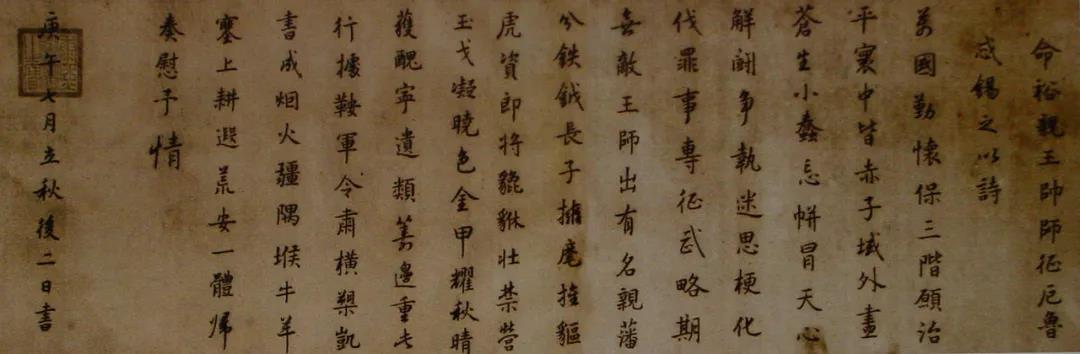 命裕親王帥師征厄魯
忒錫之以詩
萬國勤懷保三階願治
平寰中皆赤子域外盡
蒼生小蠢忘帡冒天心
解鬬争執迷思梗化
伐罪事專征武略期
無敵王師出有名親藩
分鉄鉞長子擁麾旌貙
虎資郎將貔貅壯禁營
玉戈凝曉色金甲耀秋晴
獲醜寧遺類籌邊重此
行據鞍軍令肅橫槊凱
書成烟火疆隅堠牛羊
塞上耕遐荒安一體歸
奏慰予情
庚午七月立秋後二日書